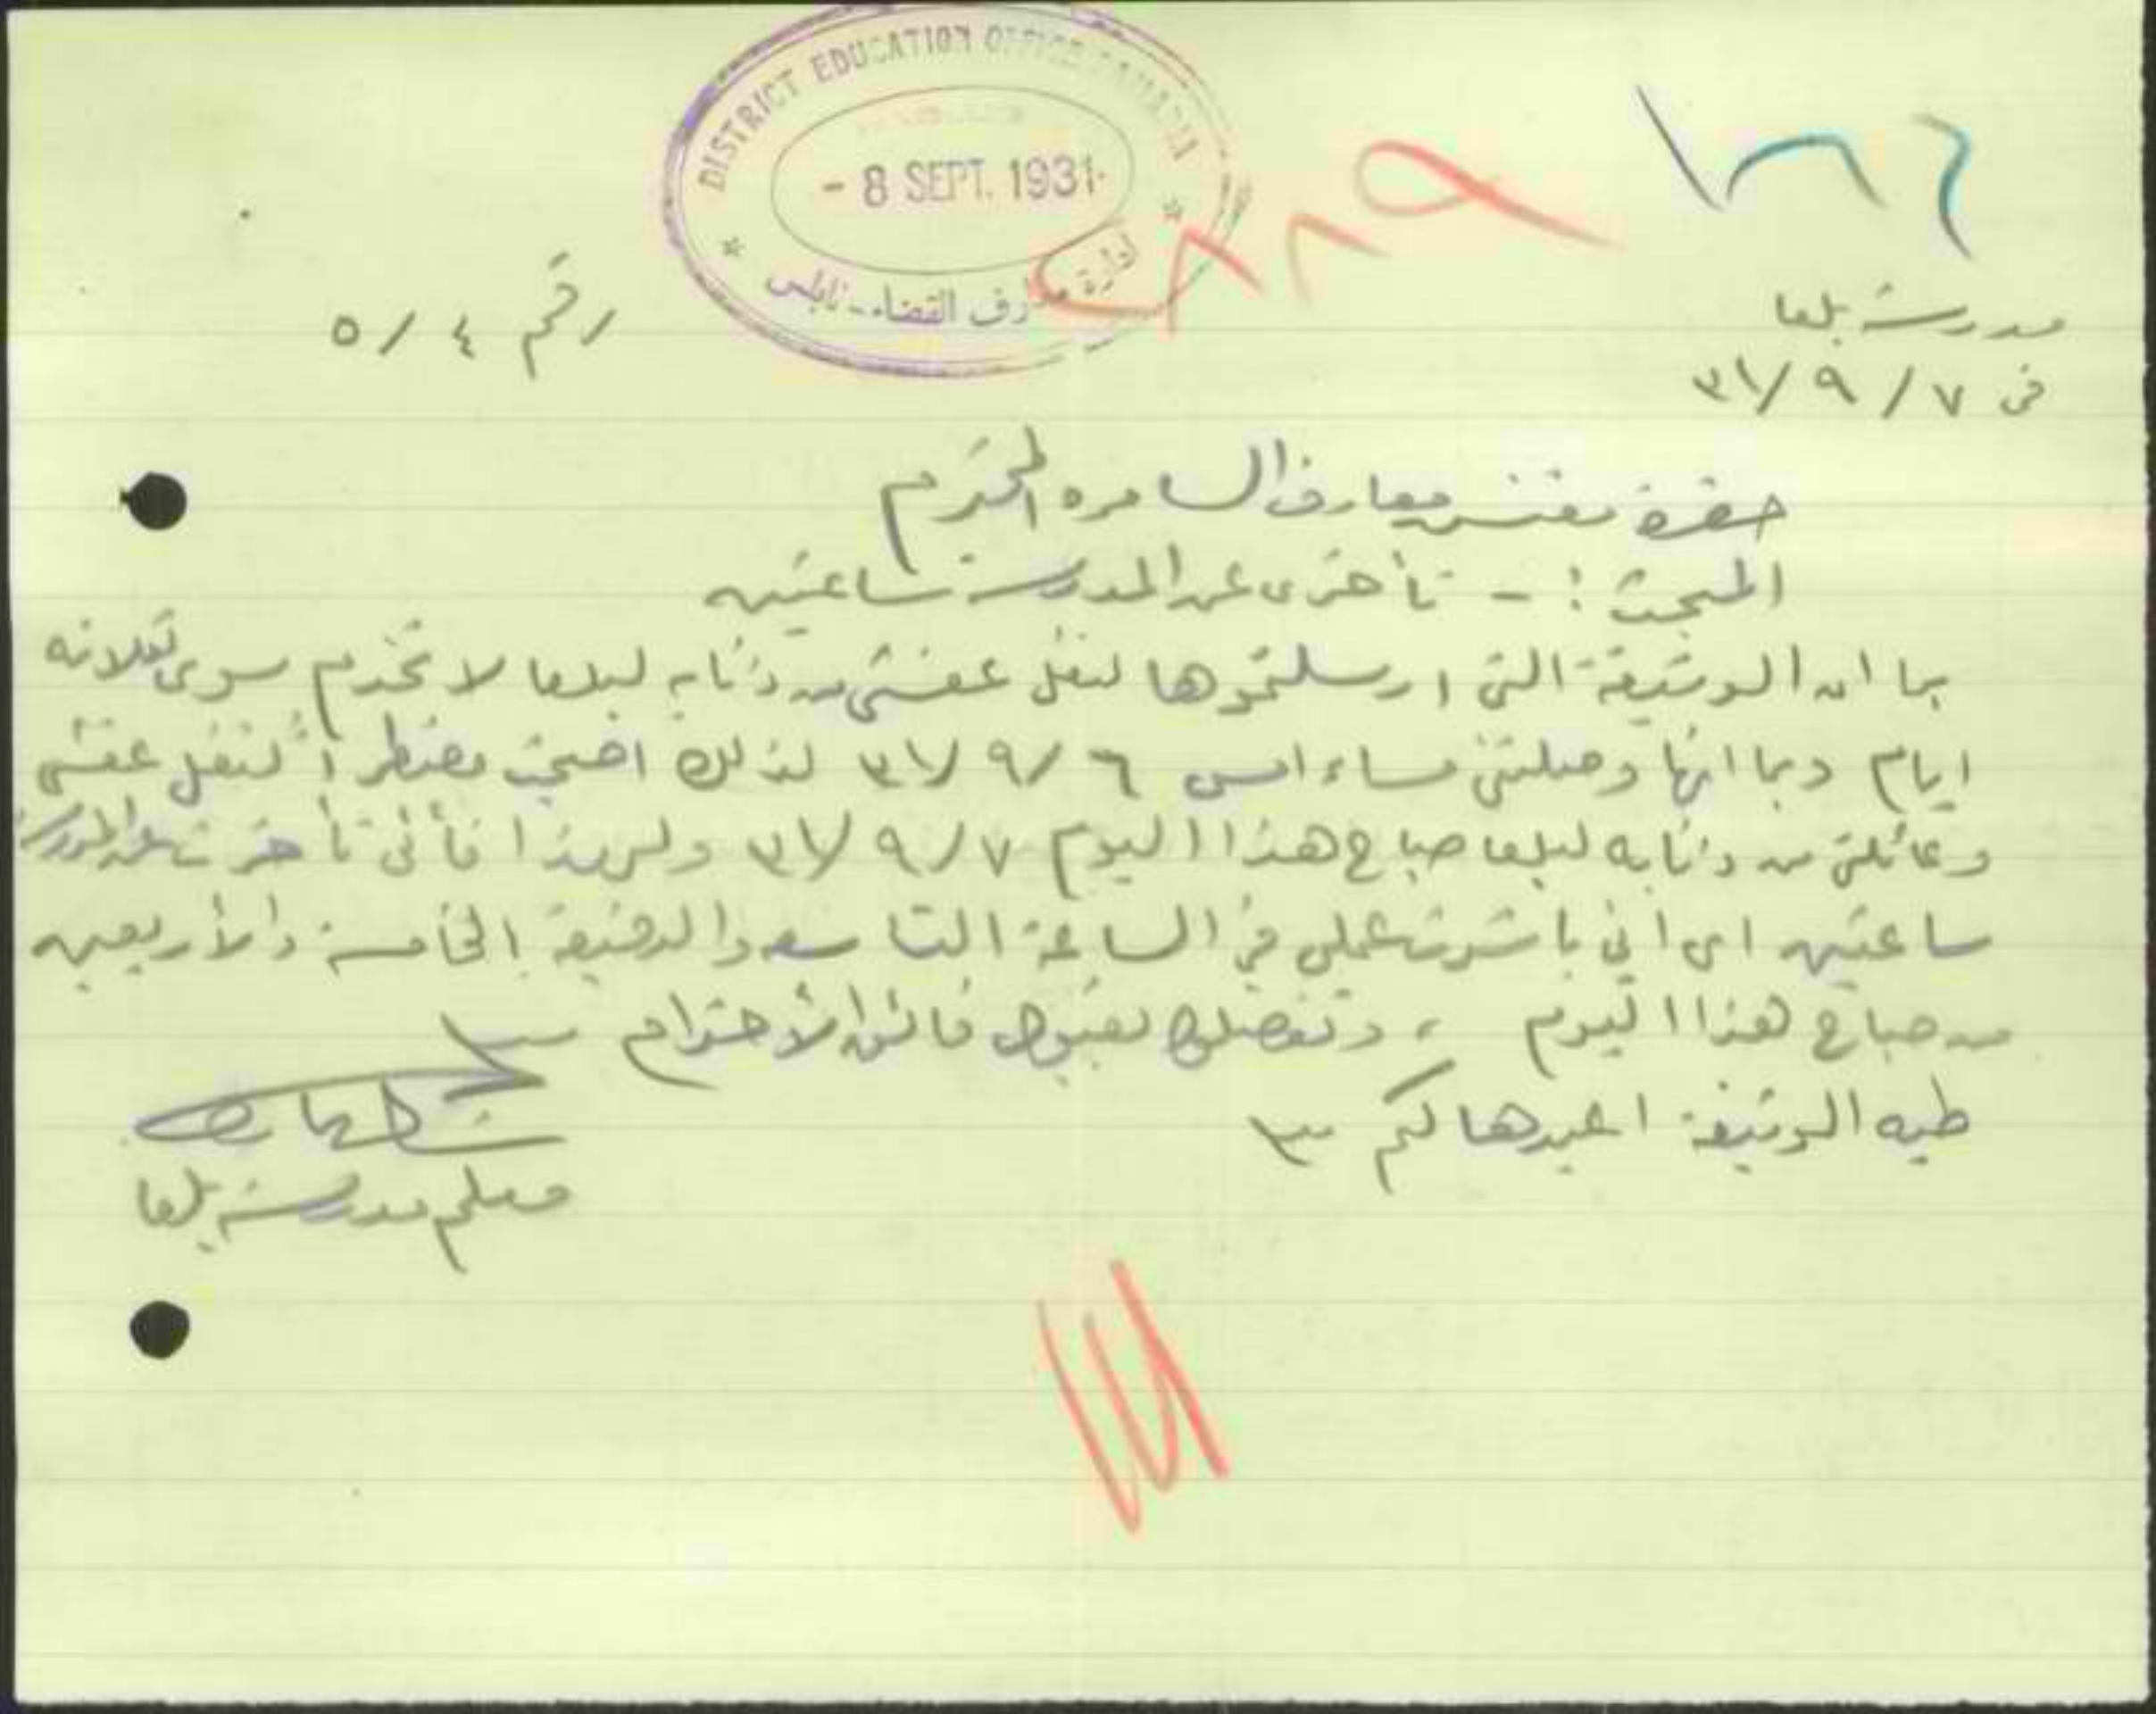 DISTRICT EDUCATION OFFICE SAMARIA
- 8 SEPT. 1931
ادارة معارف القضاء - نابلس
مدرسة بلعا
في ٧ / ٩ / ٣١
رقم ٤ / ٥
حضرة مفتش معارف السامره المحترم
المبحث : - تأخري عن المدرسة ساعتين
بما ان الوثيقة التي ارسلتموها لنقل عفشي من ذنابه لبلعا لا تخدم سوى لثلاثة
ايام وبما انها وصلتني مساء امس ٦ / ٩ / ٣١ لذلك اصبحت مضطراً لنقل عفشي
وعائلتي من ذنابه لبلعا صباح هذا اليوم ٧ / ٩ / ٣١ ولهذا فأني تأخرت عن المدرسة
ساعتين اي اني باشرت عملي في الساعة التاسعه والدقيقة الخامسة والأربعين
من صباح هذا اليوم ، وتفضلوا بقبول فائق الأحترام
طيه الوثيقة اعيدها لكم
معلم مدرسة بلعا